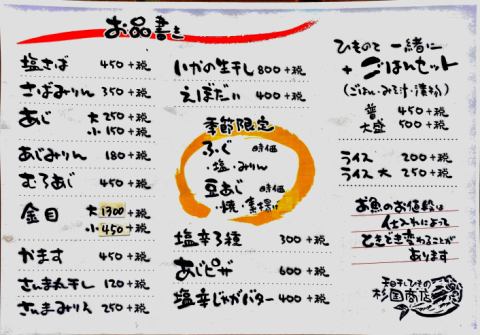 お品書き
塩さば 450+税
さばみりん 350+税
あじ 大 250+税
小 150+税
あじみりん 180+税
むろあじ 450+税
金目 大 1300+税
小 450+税
かます 450+税
さんま丸干し 120+税
さんまみりん 250+税
いかの生干し 800+税
えぼだい 400+税
季節限定
ふぐ 時価
・塩・みりん
豆あじ 時価
・焼・素揚げ
塩辛3種 300+税
あじピザ 600+税
塩辛じゃがバター 400+税
ひものと一緒に
+ごはんセット
(ごはん・みそ汁・漬物)
普 450+税
大盛 500+税
ライス 200+税
ライス 大 250+税
お魚のお値段は
仕入れによって
ときどき変わることが
あります
杉国商店